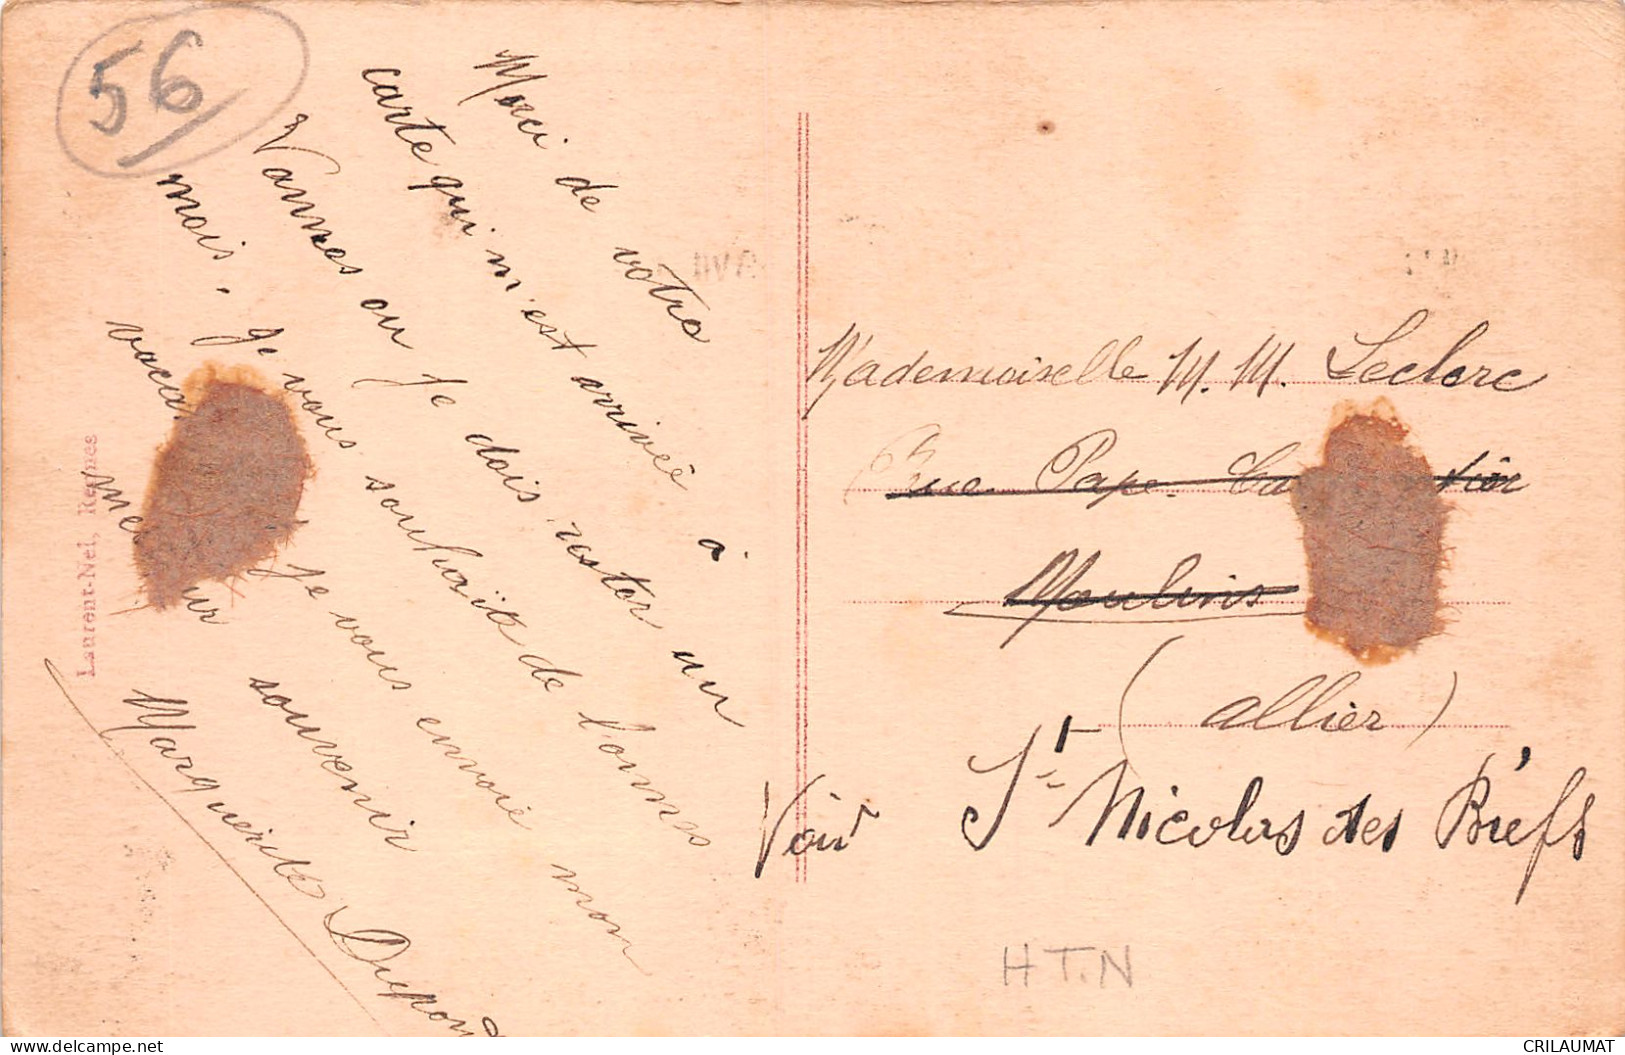 56
Merci de votre
carte qui m'est arrivée à
Vannes ou Je dois rester un
mois. Je vous souhaite de bonnes
Je vous envoie mon
souvenir
Marguerite Dupont
Laurent-Nel, Rennes
Mademoiselle M. M. Leclerc
Rue Pape
Moulins
(Allier)
Voir St Nicolas des Biefs
H T.N
CRILAUMAT